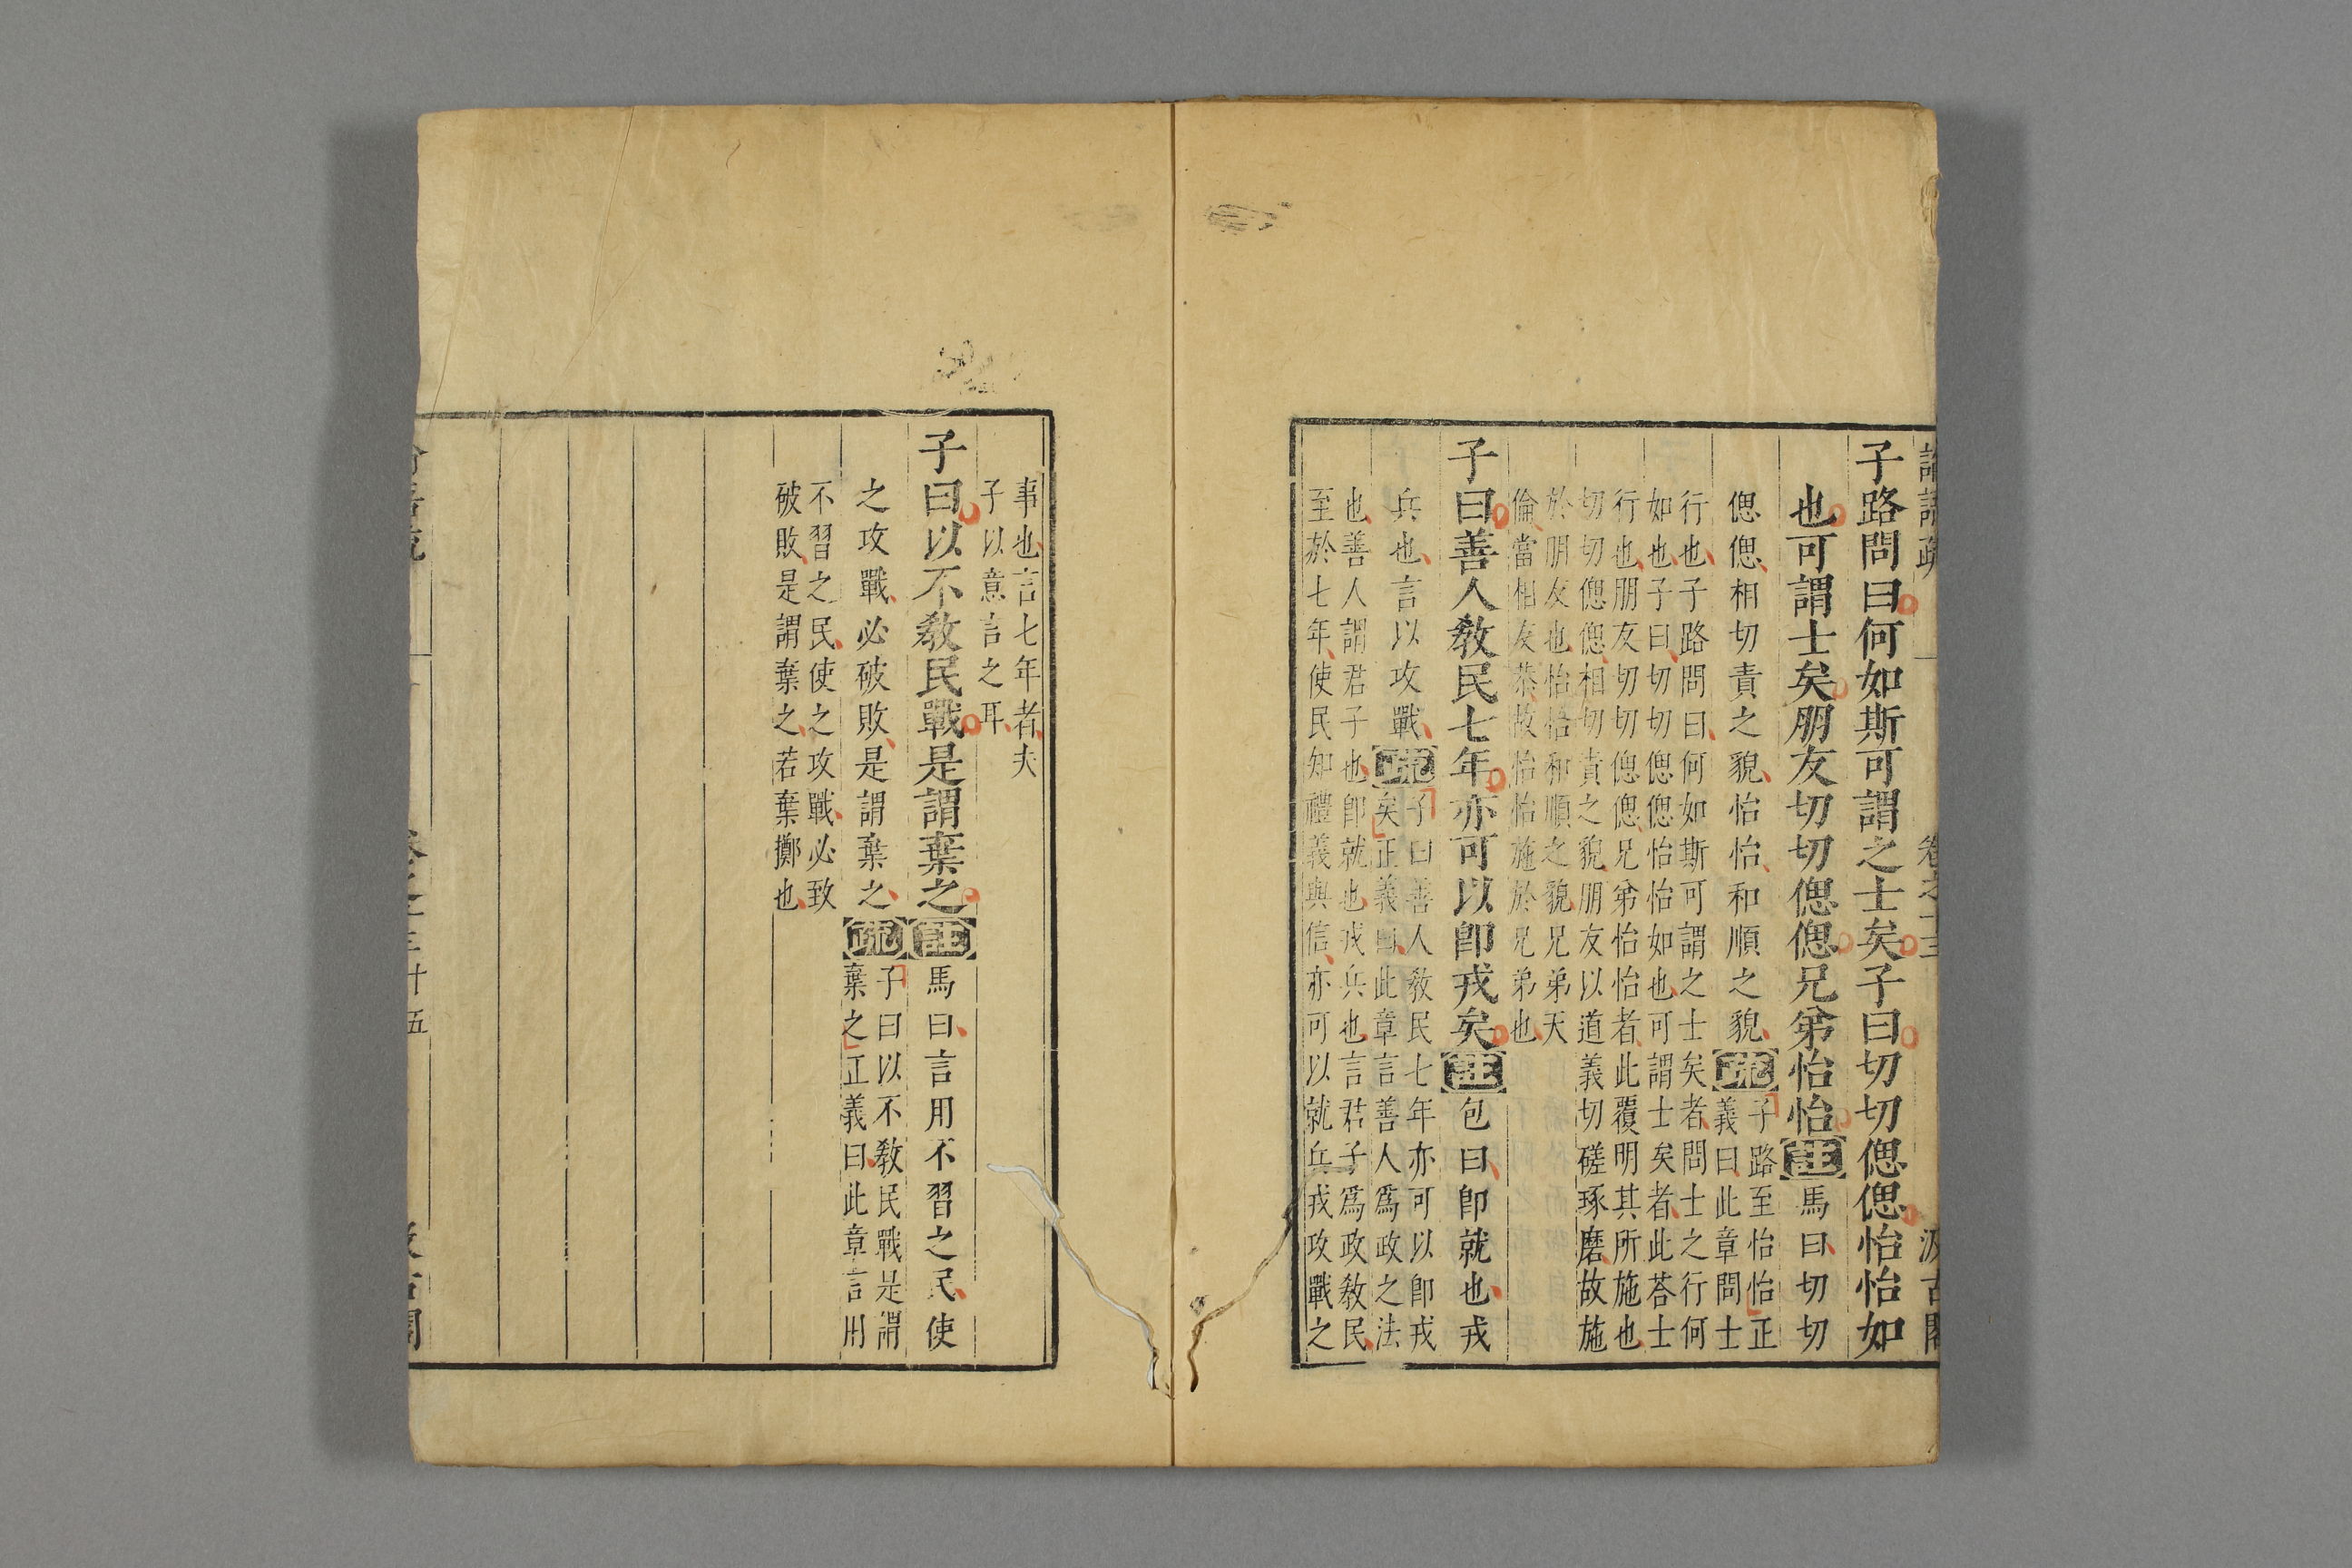 子路問曰何如斯可謂之士矣子曰切切偲偲怡怡如
也可謂士矣朋友切切偲偲兄弟怡怡註馬曰切切
偲偲相切責之貌怡怡和順之貌疏子路至怡怡正
義曰此章問士
行也子路問曰何如斯可謂之士矣者問士之行何
如也子曰切切偲偲怡怡如也可謂士矣者此荅士
行也朋友切切偲偲兄弟怡怡者此覆明其所施也
切切偲偲相切責之貌朋友以道義切磋琢磨故施
於朋友也怡怡和順之貌兄弟天
倫當相友恭故怡怡施於兄弟也
子曰善人敎民七年亦可以卽戎矣註包曰卽就也戎
兵也言以攻戰疏子曰善人敎民七年亦可以卽戎
矣正義曰此章言善人爲政之法
也善人謂君子也卽就也戎兵也言君子爲政敎民
至於七年使民知禮義與信亦可以就兵戎攻戰之
事也言七年者夫
子以意言之耳
子曰以不敎民戰是謂棄之註馬曰言用不習之民使
之攻戰必破敗是謂棄之疏子曰以不敎民戰是謂
棄之正義曰此章言用
不習之民使之攻戰必致
破敗是謂棄之若棄擲也